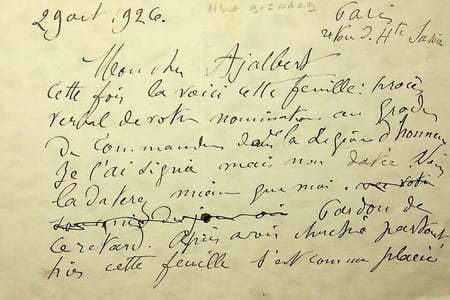 2 9 oct. 1926.
ALBERT BESNARD
Paris
Hte Savoie
Mon cher Ajalbert
Cette fois la voici cette feuille: procès
verbal de votre nomination au Grade
De Commandeur dans la Légion d'honneur
Je l'ai signé mais non datée. Vous
la daterez mieux que moi.
Pardon de
ce retard. Après avoir cherché partout
cette feuille s'est comme placée